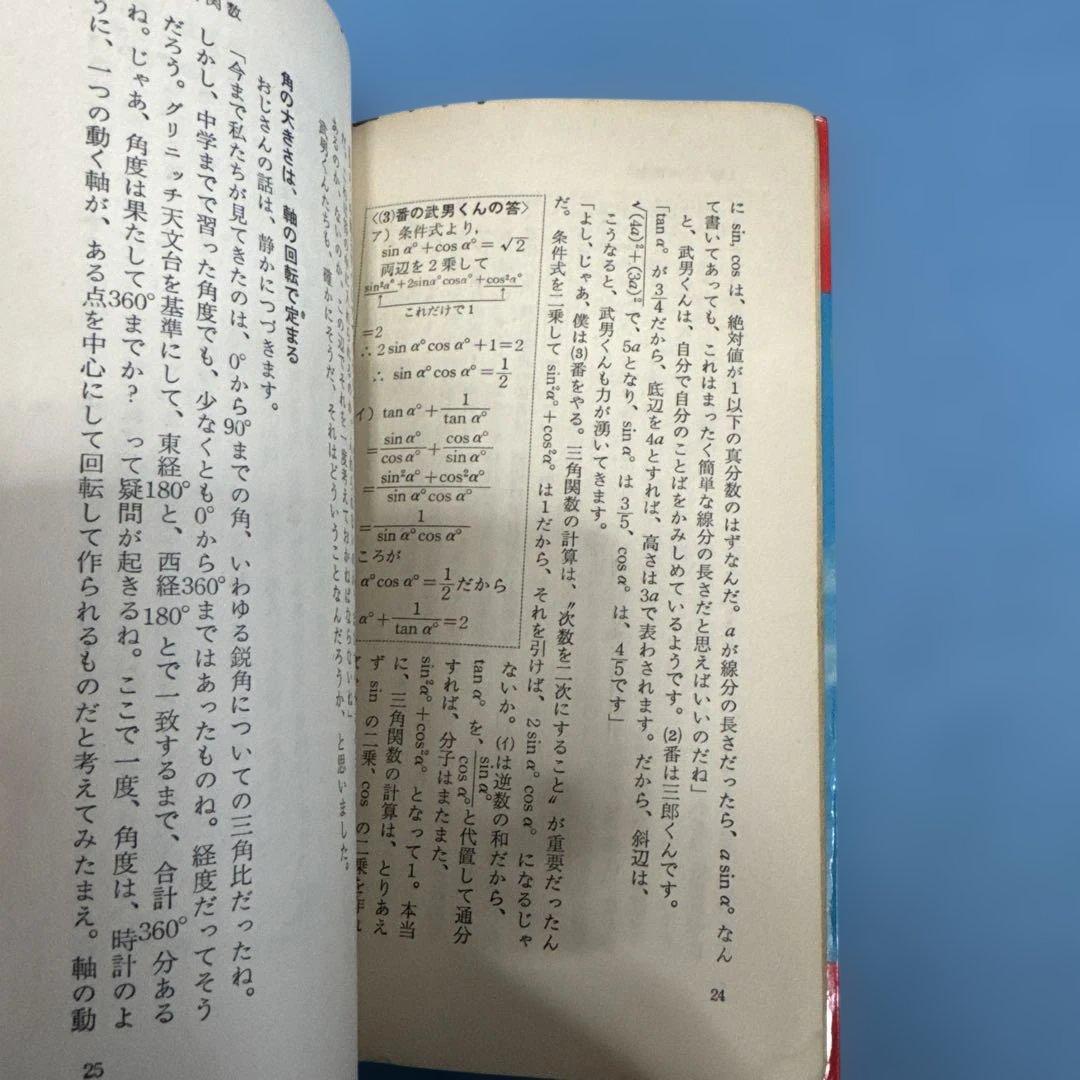 に sin, cos は、絶対値が1以下の真分数のはずなんだ。aが線分の長さだったら、a sin α° なん
て書いてあっても、これはまったく簡単な線分の長さだと思えばいいのだね」
と、武男くんは、自分で自分のことばをかみしめているようです。(2)番は三郎くんです。
「tan α° が 3/4 だから、底辺を 4a とすれば、高さは 3a で表わされます。だから、斜辺は、
√(4a)²+(3a)² で、5a となり、sin α° は 3/5、cos α° は、4/5 です」
こうなると、武男くんも力が湧いてきます。
「よし、じゃあ、僕は(3)番をやる。三角関数の計算は、〝次数を二次にすること〟が重要だったん
だ。条件式を二乗して sin²α°+cos²α° は1だから、それを引けば、2 sin α° cos α° になるじゃ
ないか。(イ)は逆数の和だから、
tan α° を、sin α°/cos α° と代置して通分
すれば、分子はまたまた、
sin²α°+cos²α° となって1。本当
に、三角関数の計算は、とりあえ
ず sin の二乗、cos の二乗を
〈(3)番の武男くんの答〉
ア) 条件式より,
sin α°+cos α°=√2
両辺を2乗して
sin²α°+2sinα°cosα°+cos²α°
これだけで1
=2
∴ 2 sin α° cos α°+1=2
∴ sin α° cos α°=1/2
イ) tan α°+1/tan α°
=sin α°/cos α°+cos α°/sin α°
=sin²α°+cos²α°/sin α° cos α°
=1/sin α° cos α°
ころが
α° cos α°=1/2 だから
α°+1/tan α°=2
24
武男くんたちも、確かにそうだ、それはどういうことなんだろうか、と思いました。
角の大きさは、軸の回転で定まる
おじさんの話は、静かにつづきます。
「今まで私たちが見てきたのは、0°から90°までの角、いわゆる鋭角についての三角比だったね。
しかし、中学までで習った角度でも、少なくとも0°から360°まではあったものね。経度だってそう
だろう。グリニッチ天文台を基準にして、東経180°と、西経180°とで一致するまで、合計360°分ある
ね。じゃあ、角度は果たして360°までか? って疑問が起きるね。ここで一度、角度は、時計のよ
うに、一つの動く軸が、ある点を中心にして回転して作られるものだと考えてみたまえ。軸の動
関数
25